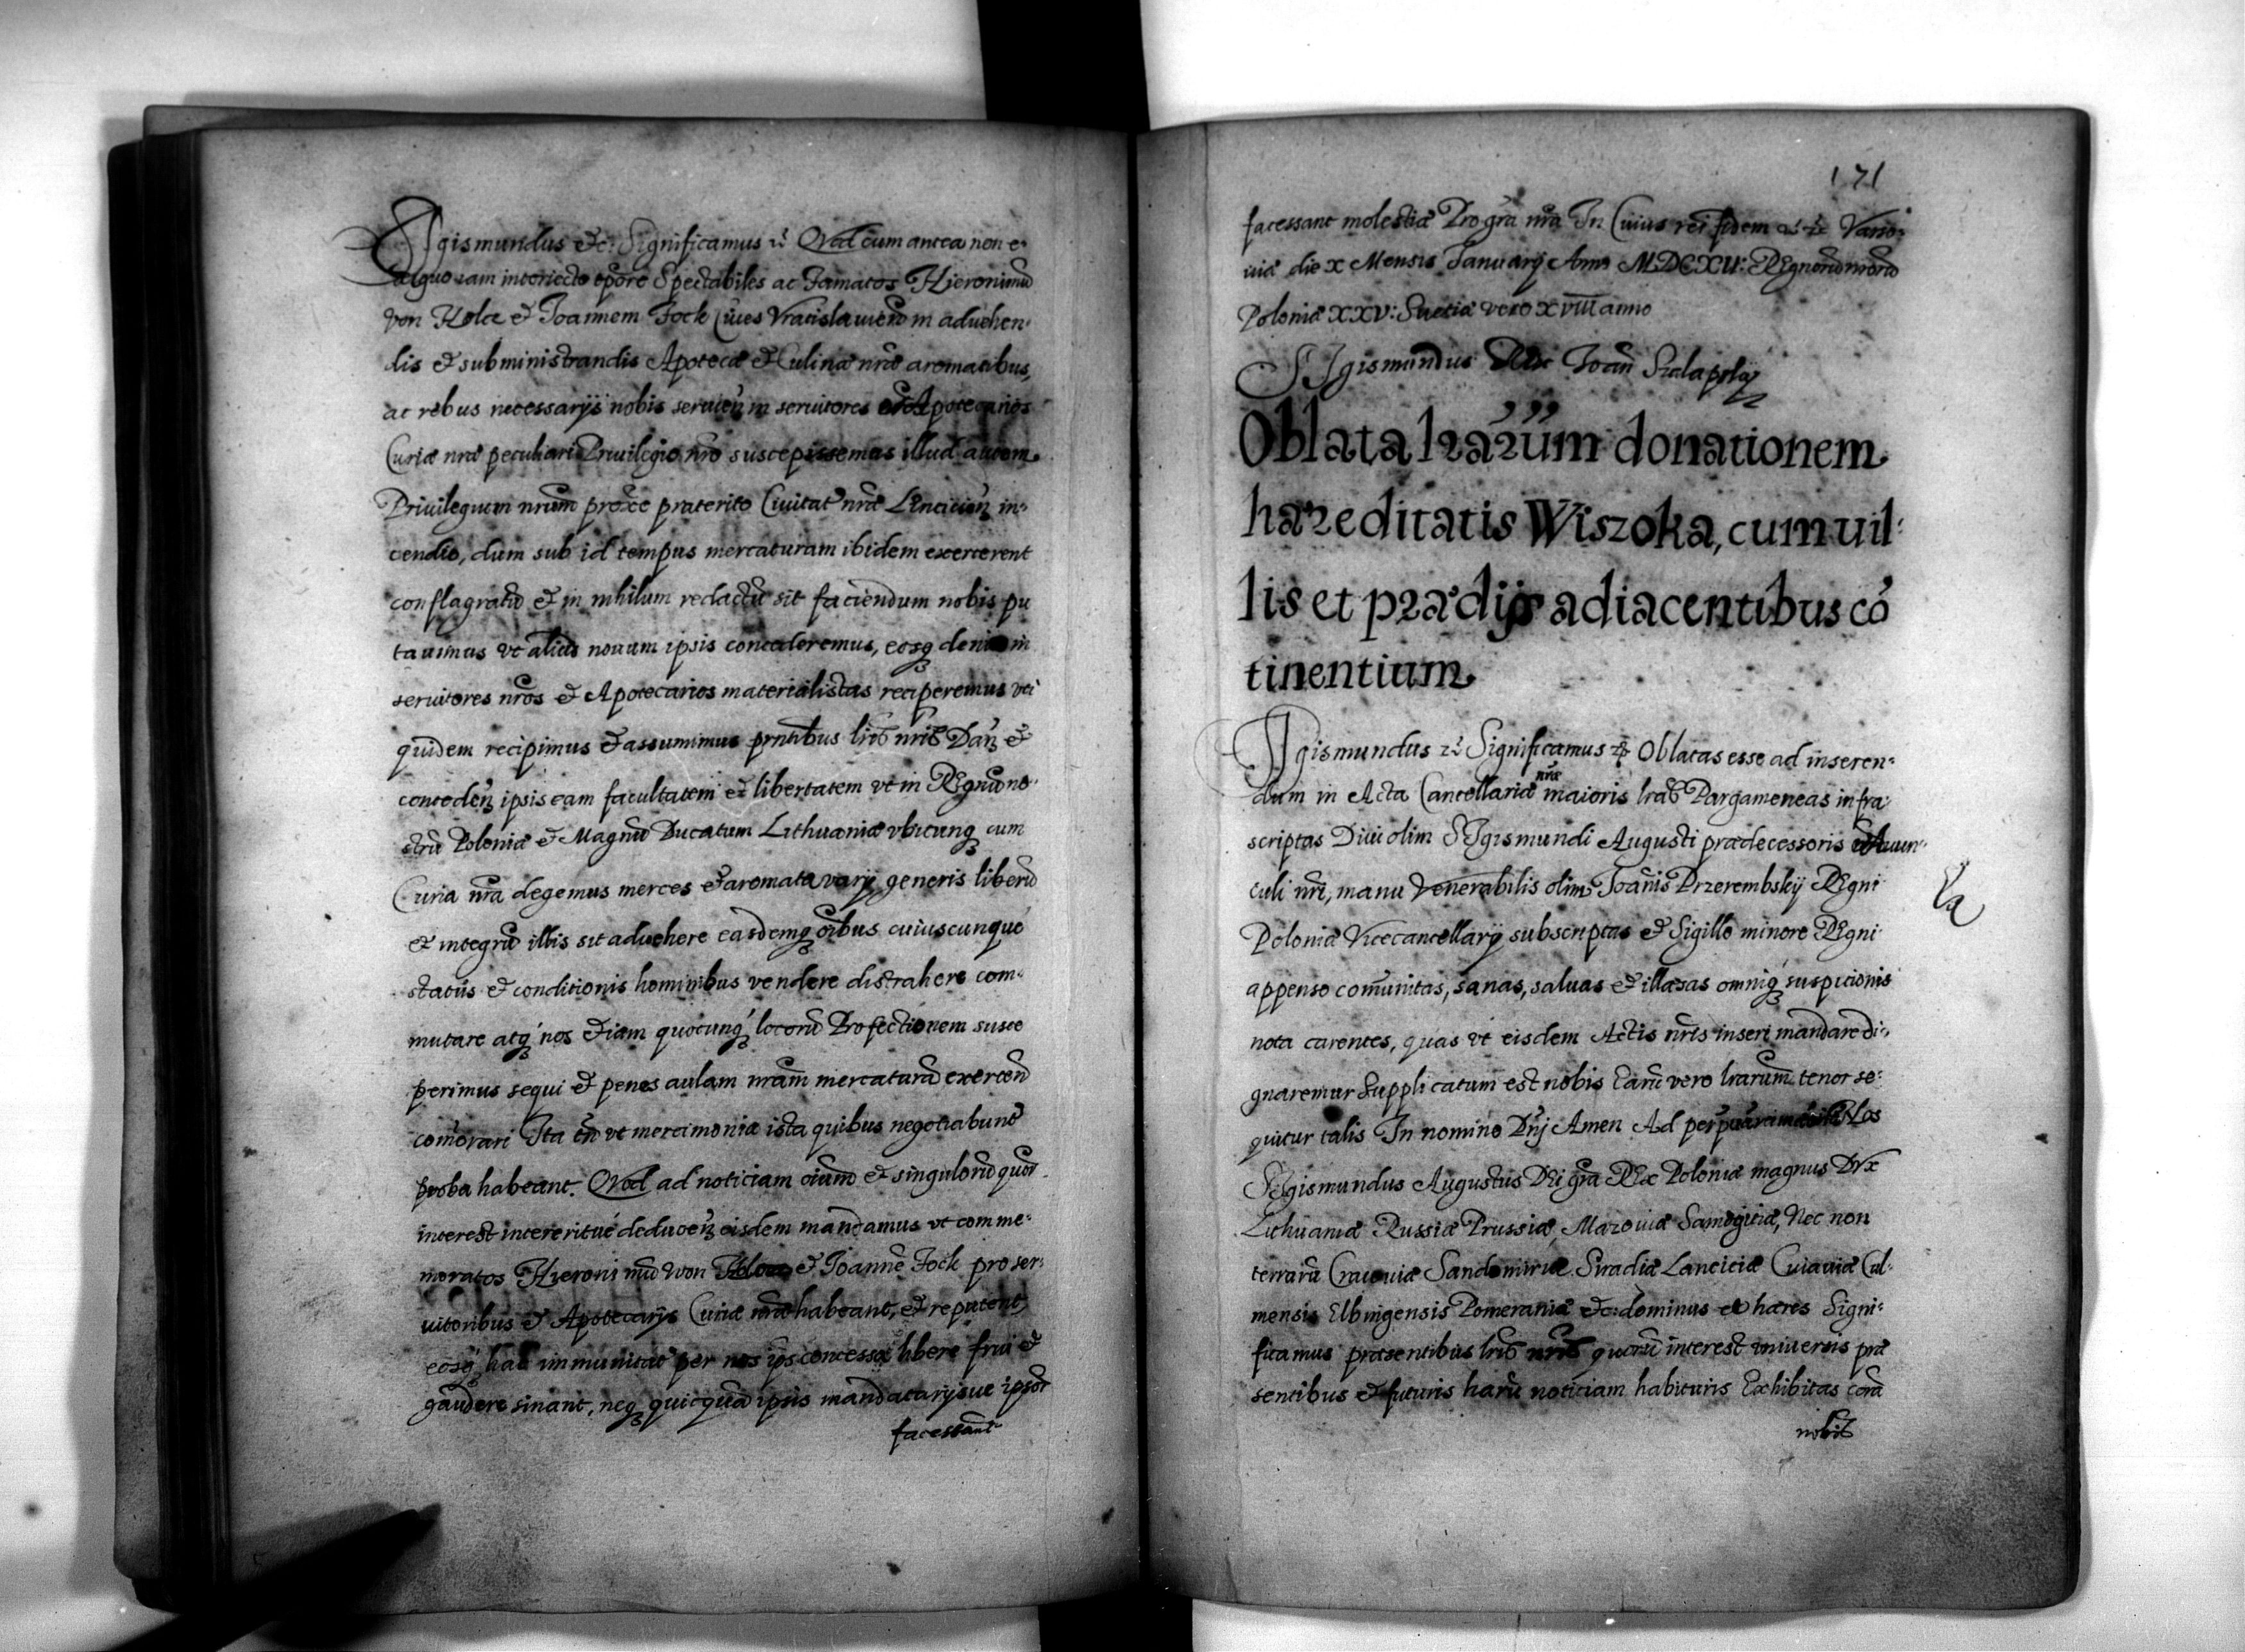 SIgismundus &c: Significamus &c Quod cum antea non e-
aliquo iam interiecto tpore Spectabiles ac Famatos Hieronimũ
von Holcz & Joannem Fock Ciues Vratislauien in aduehen-
dis & subministrandis Apotecæ & Culinæ nræ aromatibus,
ac rebus necessarijs nobis seruien in seruitores & Apotecarios
Curiæ nræ peculiari Priuilegio nro suscepissemus illud autem
Priuilegium nrum proxe præterito Ciuitat nræ Lencicien in-
cendio, dum sub id tempus mercaturam ibidem exercerent
conflagratũ & in nihilum redactũ sit faciendum nobis pu
tauimus vt aliud nouum ipsis concederemus, eosq denuo in
seruitores nros & Apotecarios materialistas reciperemus vti
quidem recipimus & assumimus prntibus lris nris Dan &
conceden ipsis eam facultatem & libertatem vt in Regnũ no-
strũ Poloniæ & Magnũ Ducatum Lithuaniæ vbicunq cum
Curia nra degemus merces & aromata varij generis liberũ
& integrũ illis sit aduehere easdemq oibus cuiuscunque
status & conditionis hominibus vendere distrahere com-
mutare atq nos etiam quocunq locorũ Profectionem susce
perimus sequi & penes aulam nram mercaturã exercen
comorari Ita tñ vt mercimonia ista quibus negotiabunt
proba habeant. Quod ad noticiam oium & singulorũ quor
interest intereritue deducen eisdem mandamus vt comme-
moratos Hieronimũ von Holcz & Joannẽ Fock pro ser-
uitoribus & Apotecarijs Curiæ nræ habeant, & reputent,
eosq hac immunitat per nos ips concessa libere frui &
gaudere sinant, neq quicquã ipsis mandatarijsue ipsor
facessant
171
facessant molestiæ Pro gra nra In Cuius rei fidem &c &c Varso-
uiæ die X Mensis Januarij Anno MDCXII: Regnorũ nrorũ
Poloniæ XXV: Suetiæ vero XVIII anno
SIgismundus Rex Joan
Oblata lrarum donationem
hæreditatis Wiszoka, cum uil-
lis et prædijs adiacentibus cõ
tinentium
SIgismundus &c Significamus &c Oblatas esse ad inseren-
dum in Acta Cancellariæ nræ maioris lras Pargameneas infra-
scriptas Diui olim SIgismundi Augusti prædecessoris & Auun-
culi nri, manu Venerabilis olim Joanis Przerembskij Regni
Poloniæ Vicecancellarij subscriptas & Sigillo minore Regni
appenso comunitas, sanas, saluas & illæsas omniq suspicionis
nota carentes, quas vt eisdem Actis nris inseri mandare di-
gnaremur Supplicatum est nobis Earũ vero lrarum tenor se-
quitur talis In nomine Dnj Amen Ad perpetuam Nos
SIgismundus Augustus Dei gra Rex Poloniæ magnus Dux
Lithuaniæ Russiæ Prussiæ, Mazouiæ Samogitiæ, Nec non
terrarũ Cracouiæ Sandomiriæ Siradiæ Lanciciæ Cuiauiæ Cul-
mensis Elbingensis Pomeraniæ &c: dominus et hæres Signi-
ficamus præsentibus lris nris quorũ interest vniuersis præ
sentibus & futuris harũ noticiam habituris Exhibitas corã
nobis